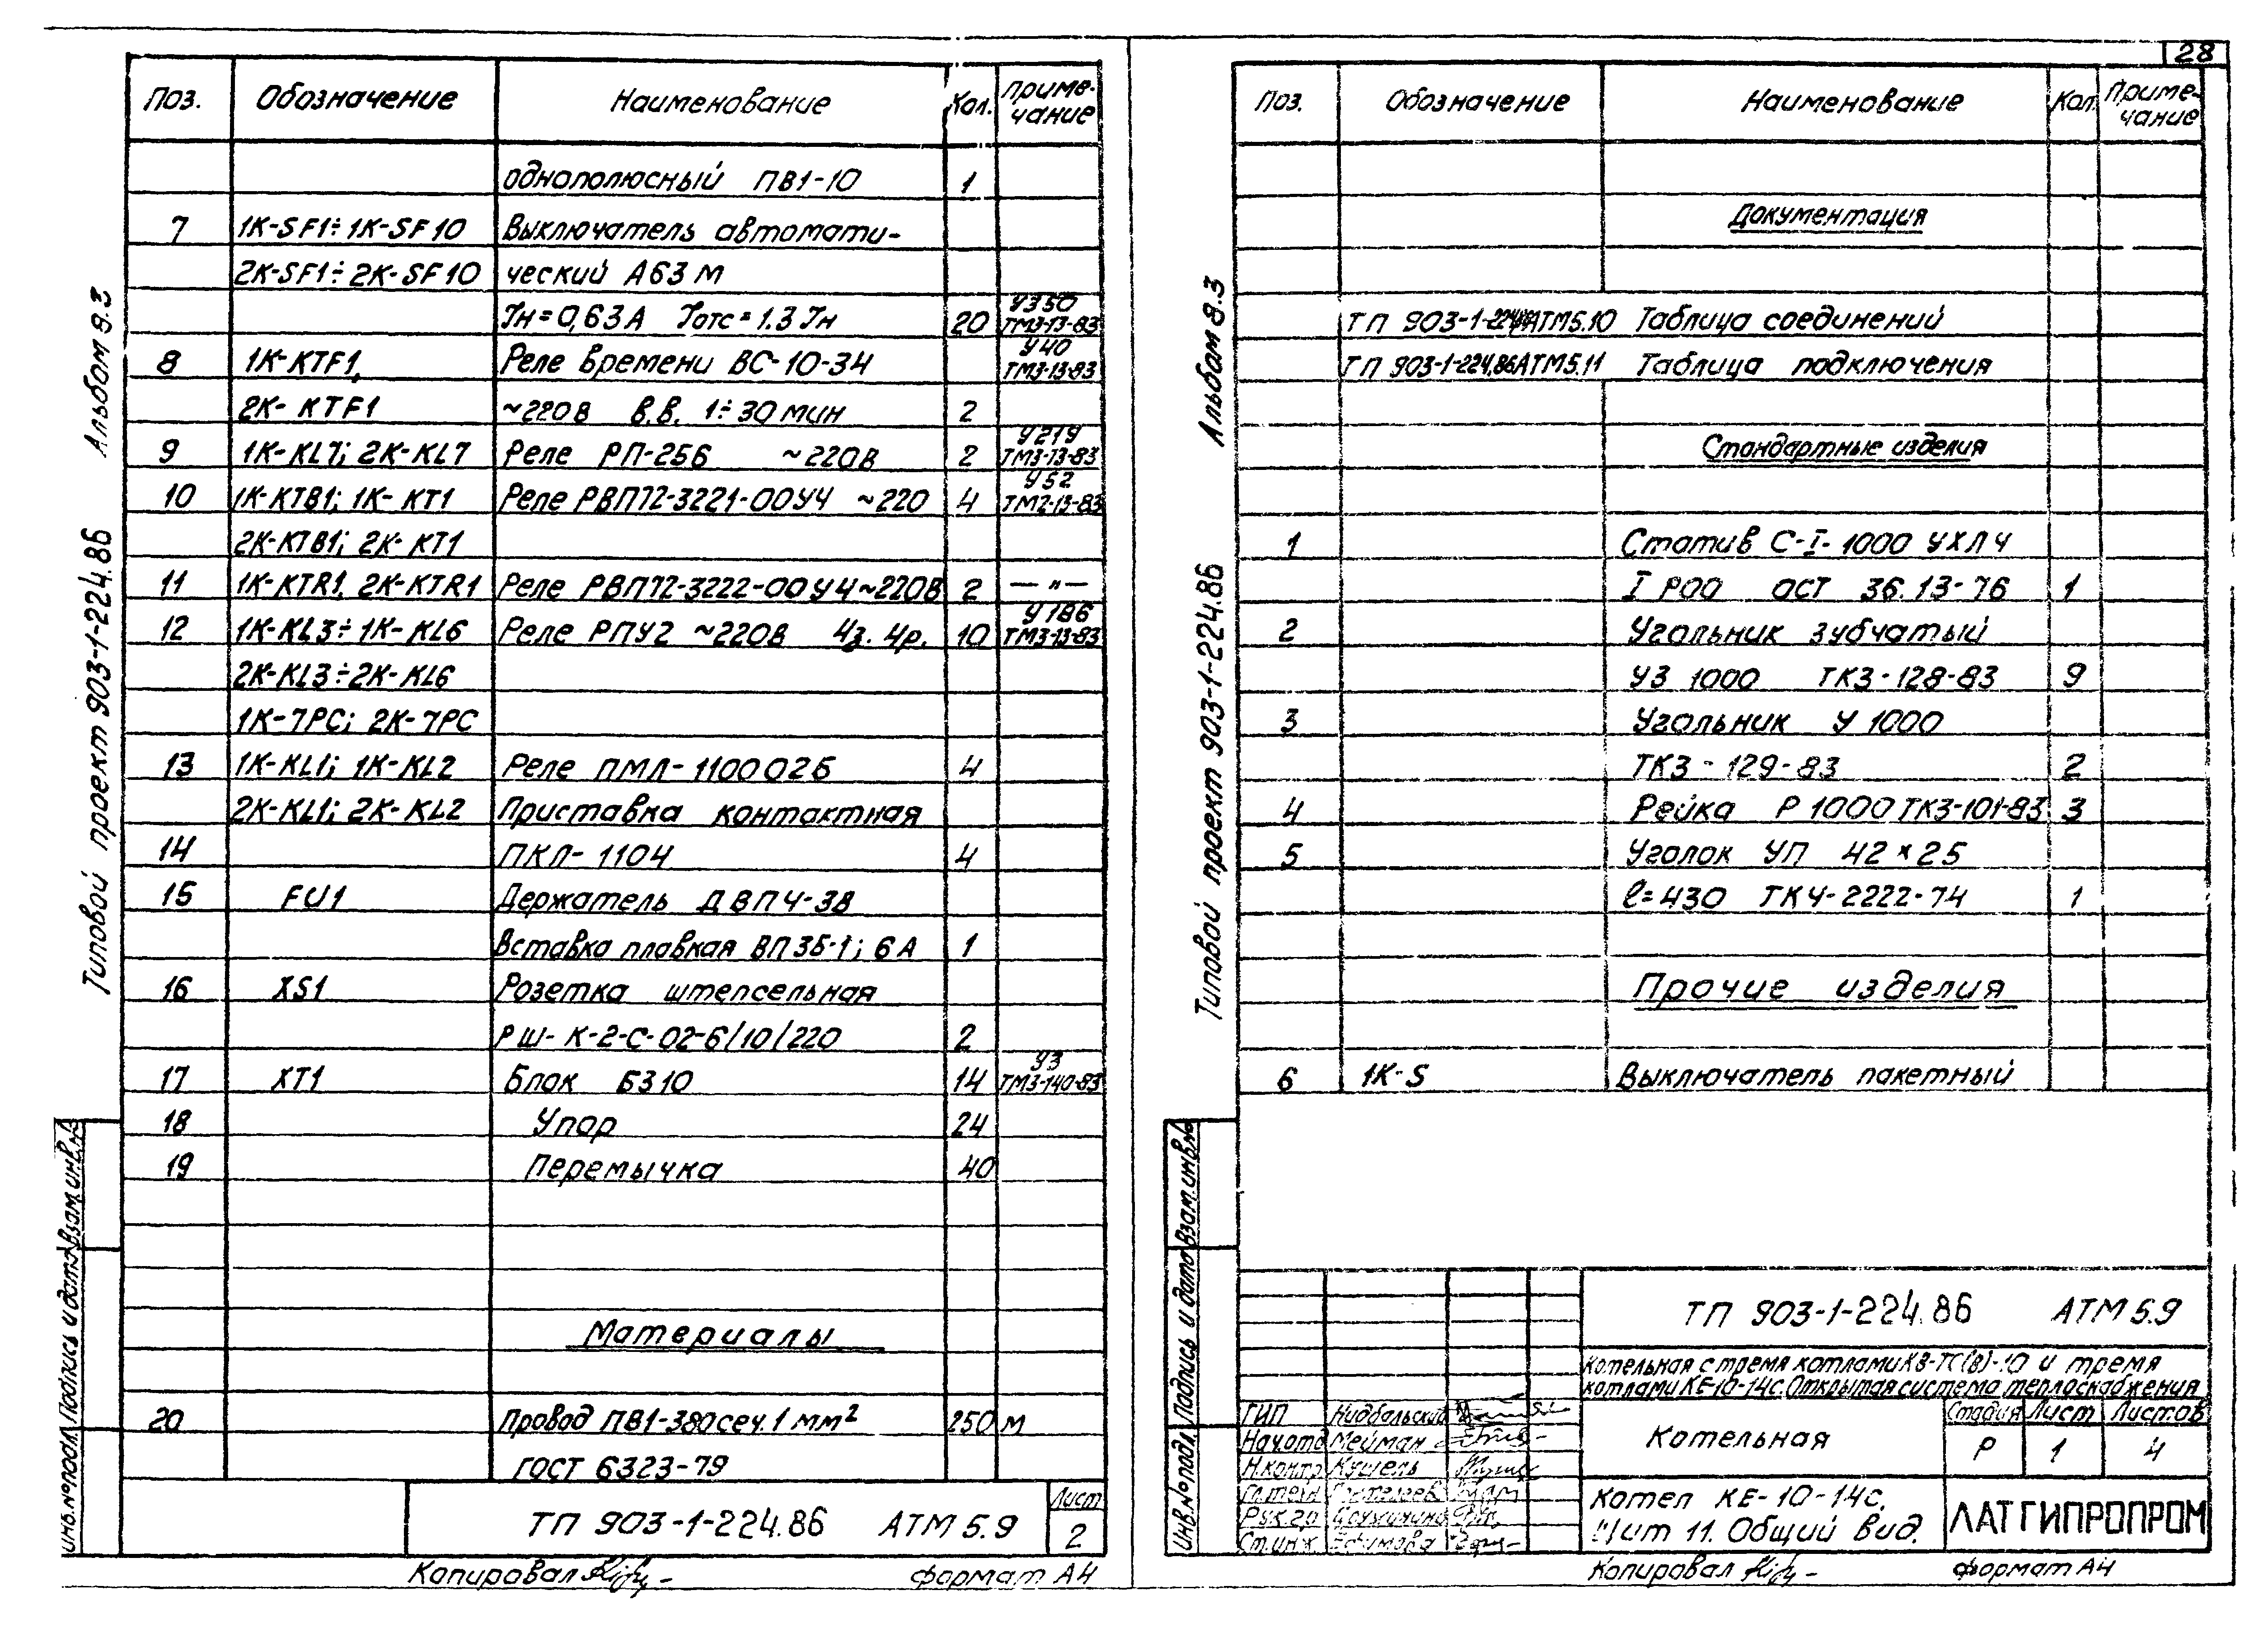 28
Альбом 8.3
Типовой проект 903-1-224.86
Поз. Обозначение Наименование Кол. Приме-
чание
однополюсный ПВ1-10 1
7 1К-SF1÷1К-SF10 Выключатель автомати-
2К-SF1÷2К-SF10 ческий А63М
Iн=0,63А Iотс=1.3Iн 20 У350 ТМ3-13-83
8 1К-KTF1, Реле времени ВС-10-34 У40 ТМ3-13-83
2К-KTF1 ~220В В.В. 1÷30 мин 2
9 1К-KL7; 2К-KL7 Реле РП-256 ~220В 2 У219 ТМ3-13-83
10 1К-КТВ1; 1К-КТ1 Реле РВП72-3221-00У4 ~220 4 У52 ТМ2-13-83
2К-КТВ1; 2К-КТ1
11 1К-KTR1, 2К-KTR1 Реле РВП72-3222-00У4~220В 2 —"—
12 1К-KL3÷1К-KL6 Реле РПУ2 ~220В 4з. 4р. 10 У186 ТМ3-13-83
2К-KL3÷2К-KL6
1К-7РС; 2К-7РС
13 1К-KL1; 1К-KL2 Реле ПМЛ-110002Б 4
2К-KL1; 2К-KL2 Приставка контактная
14 ПКЛ-1104 4
15 FU1 Держатель ДВП4-38
Вставка плавкая ВП3Б-1; 6А 1
16 XS1 Розетка штепсельная
РШ-К-2-С-02-6/10/220 2
17 XT1 Блок Б310 14 У3 ТМ3-140-83
18 Упор 24
19 Перемычка 40
Материалы
20 Провод ПВ1-380 сеч. 1 мм² 250 м
ГОСТ 6323-79
Инв.№подл. Подпись и дата Взам.инв.№
ТП 903-1-224.86 АТМ 5.9 Лист 2
Копировал Формат А4
Альбом 8.3
Типовой проект 903-1-224.86
Поз. Обозначение Наименование Кол. Приме-
чание
Документация
ТП 903-1-224.86АТМ5.10 Таблица соединений
ТП 903-1-224.86АТМ5.11 Таблица подключения
Стандартные изделия
1 Статив С-I-1000 УХЛ4
I Р00 ОСТ 36.13-76 1
2 Угольник зубчатый
УЗ 1000 ТК3-128-83 9
3 Угольник У 1000
ТК3-129-83 2
4 Рейка Р1000 ТК3-101-83 3
5 Уголок УП 42×25
ℓ=430 ТК4-2222-74 1
Прочие изделия
6 1К-S Выключатель пакетный
Инв.№подл. Подпись и дата Взам.инв.№
ТП 903-1-224.86 АТМ 5.9
Котельная с тремя котлами КВ-ТС(В)-10 и тремя
котлами КЕ-10-14с. Открытая система теплоснабжения
ГИП Нидбальский
Нач.отд Мейман
Н.контр Кушель
Гл.техн
Рук.гр
Ст.инж Ефимова
Котельная
Стадия Лист Листов
Р 1 4
Котел КЕ-10-14с.
Щит 11. Общий вид.
ЛАТГИПРОПРОМ
Копировал Формат А4